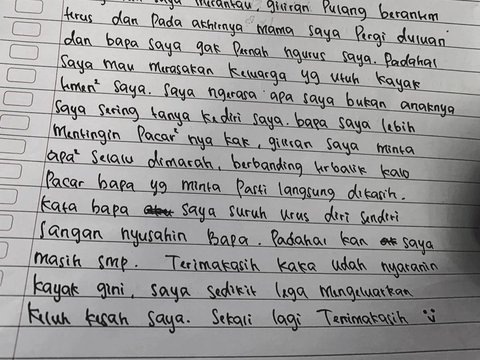 saya merantau giliran Pulang berantem
terus dan Pada akhirnya mama saya Pergi duluan
dan bapa saya gak Pernah ngurus saya. Padahal
Saya mau merasakan keluarga yg utuh kayak
temen² saya. Saya ngerasa apa saya bukan anaknya
Saya sering tanya kediri saya. bapa saya lebih
Mentingin Pacar² nya kak, giliran saya minta
apa² selalu dimarah, berbanding terbalik kalo
Pacar bapa yg minta Pasti langsung dikasih.
Kata bapa saya suruh urus diri sendiri
Jangan nyusahin Bapa. Padahal kan saya
masih smp. Terimakasih kaka udah nyaranin
kayak gini, saya sedikit lega Mengeluarkan
Keluh kesah saya. Sekali lagi Terimakasih